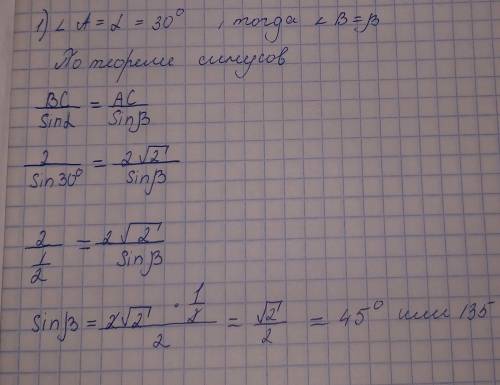 1) ∠A = α = 30° , тогда ∠B = β
По теореме синусов
BC/Sinα = AC/Sinβ
2/Sin30° = 2√2/Sinβ
2/(1/2) = 2√2/Sinβ
Sinβ = (2√2 · 1/2)/2 = √2/2 = 45° или 135